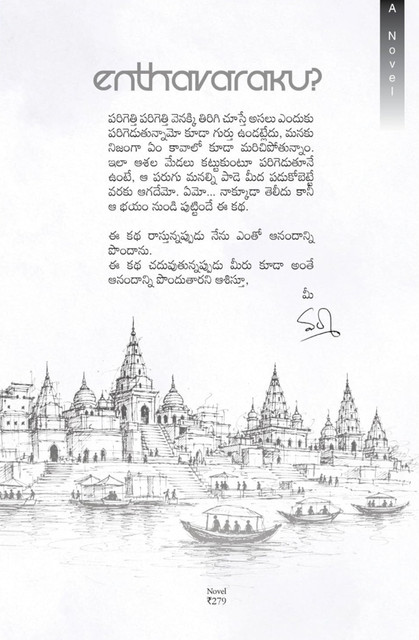 A Novel
enthavaraku?
పరిగెత్తి పరిగెత్తి వెనక్కి తిరిగి చూస్తే అసలు ఎందుకు
పరిగెడుతున్నామో కూడా గుర్తు ఉండట్లేదు, మనకు
నిజంగా ఏం కావాలో కూడా మరిచిపోతున్నాం.
ఇలా ఆశల మేడలు కట్టుకుంటూ పరిగెడుతూనే
ఉంటే, ఆ పరుగు మనల్ని పాడె మీద పడుకోబెట్టే
వరకు ఆగదేమో. ఏమో... నాక్కూడా తెలీదు కానీ
ఆ భయం నుండి పుట్టిందే ఈ కథ.
ఈ కథ రాస్తున్నప్పుడు నేను ఎంతో ఆనందాన్ని
పొందాను.
ఈ కథ చదువుతున్నప్పుడు మీరు కూడా అంతే
ఆనందాన్ని పొందుతారని ఆశిస్తూ,
మీ
Novel
₹279